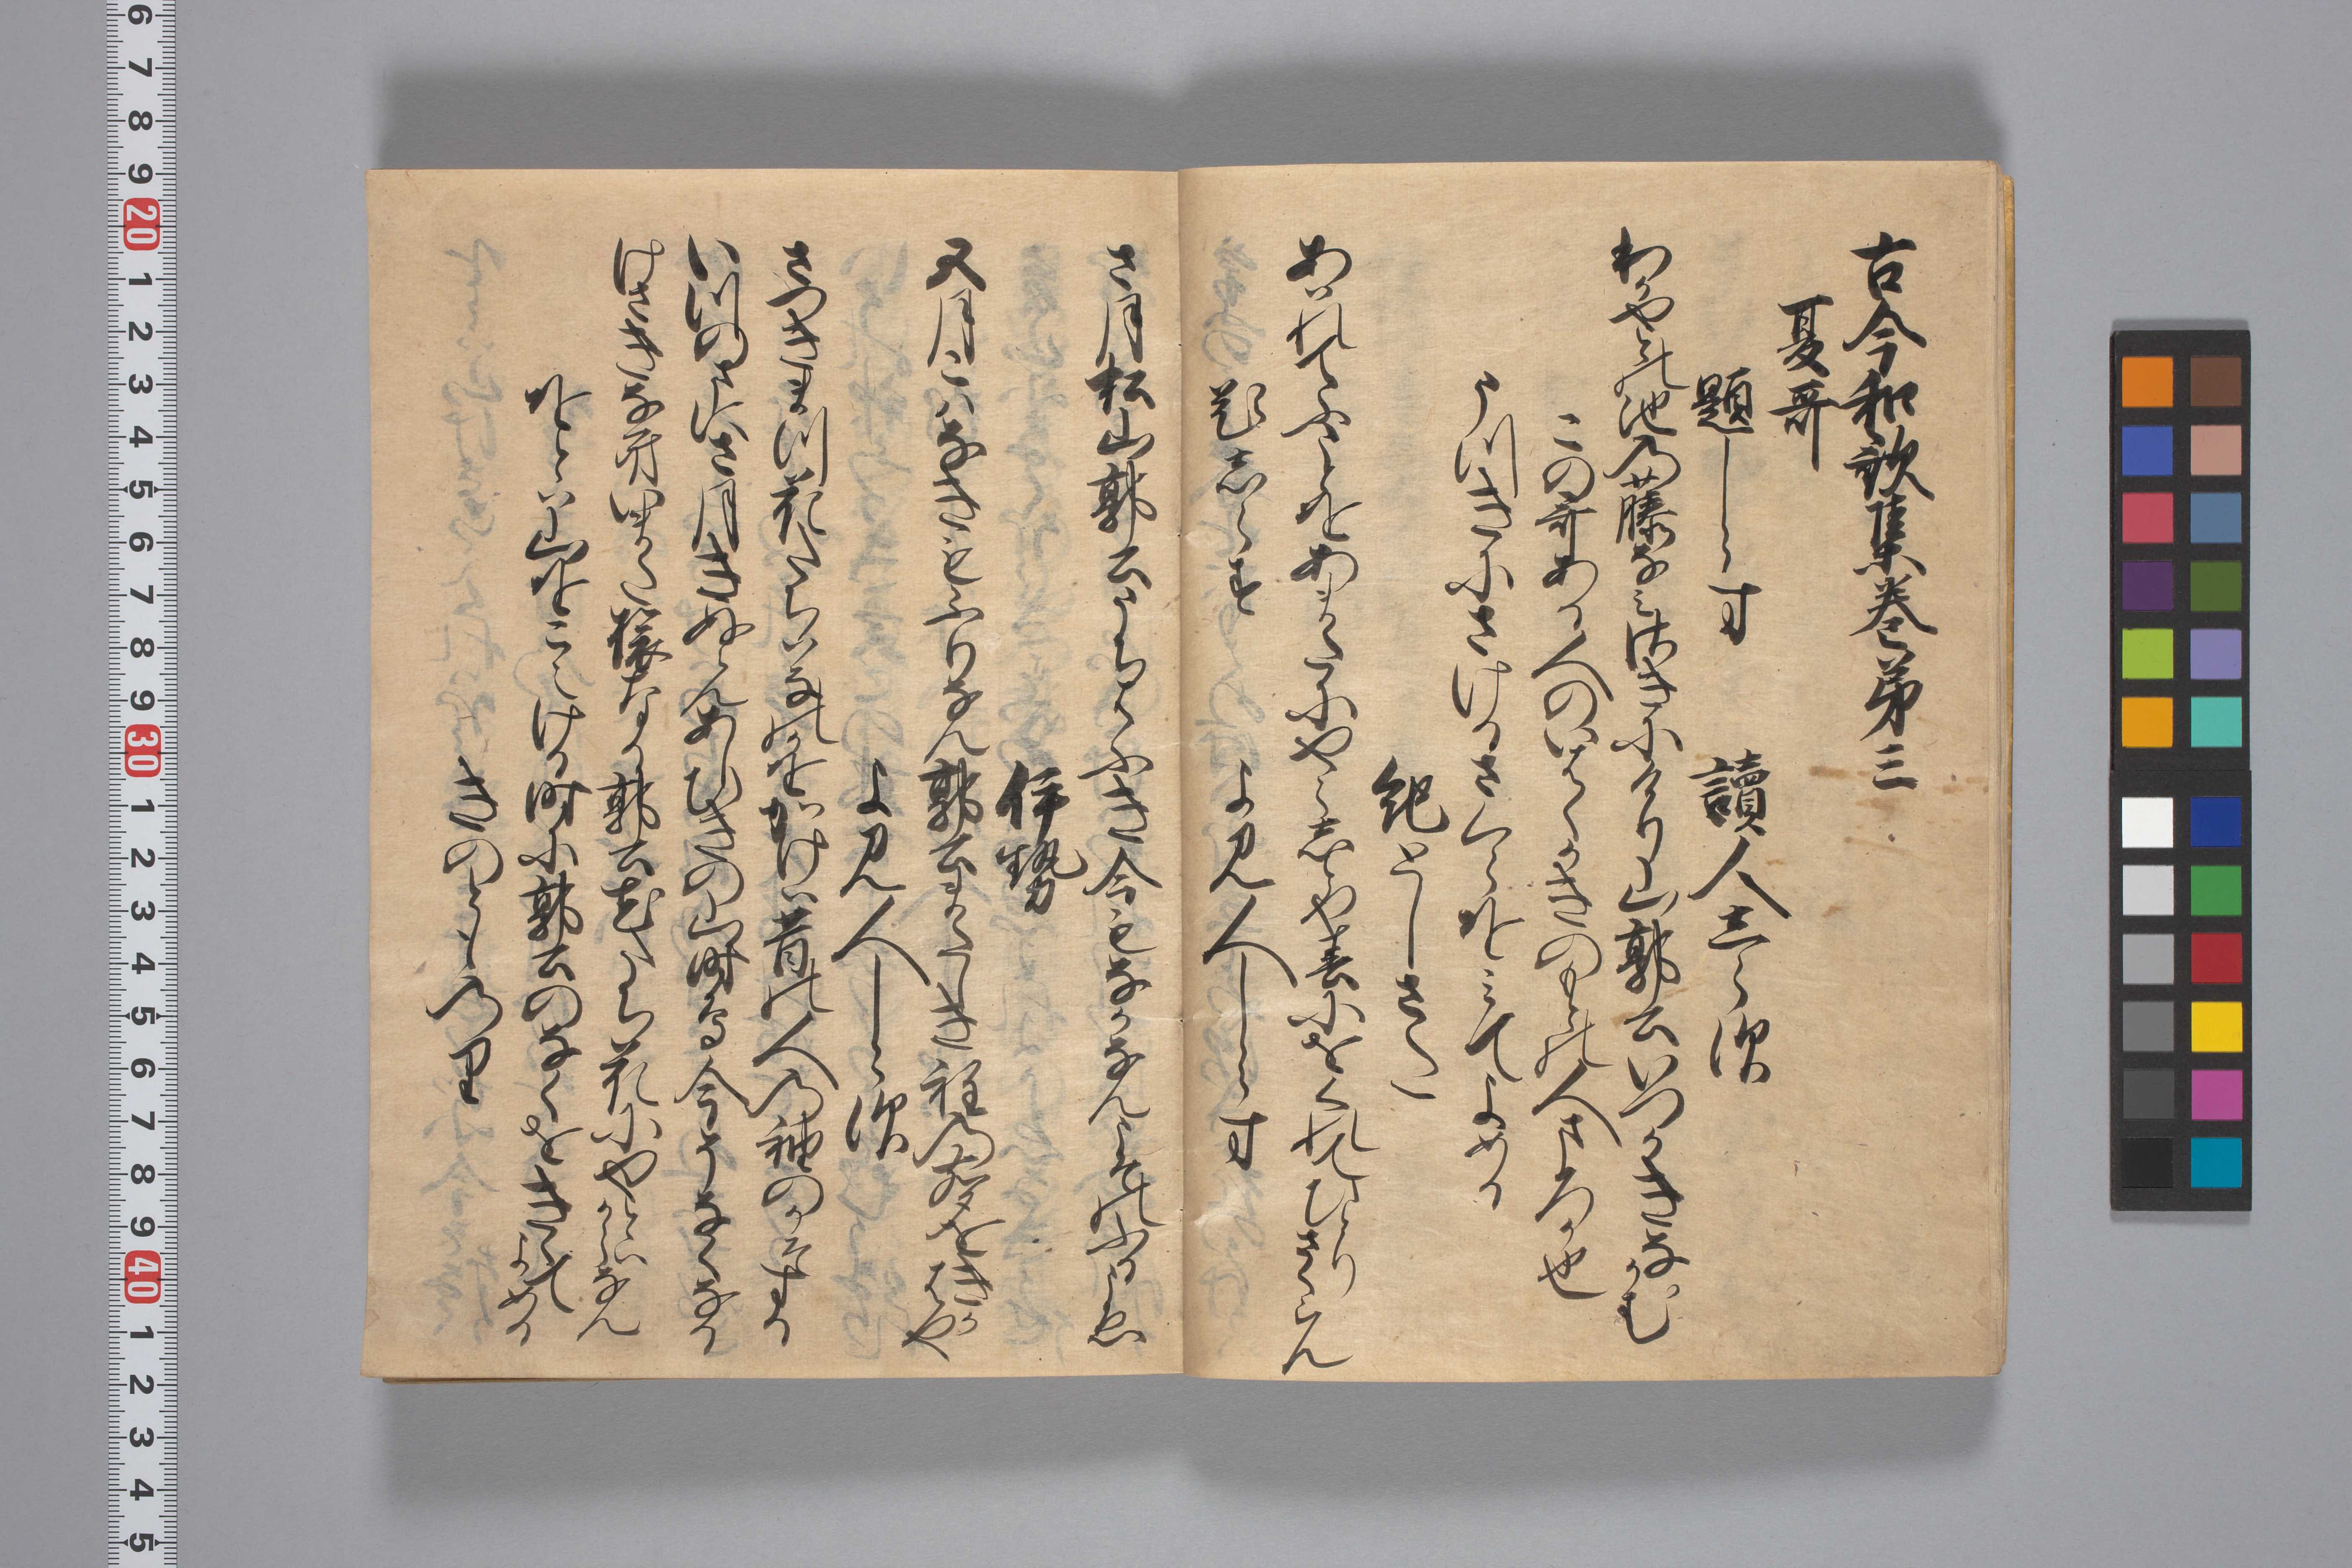 古今和歌集巻第三
夏哥
題しらす　讀人しらす
わかやとの池の藤なみさきにけり山郭公いつかきなかむ
この哥ある人のいはくかきのもとの人まろか也
う月にさけるさくらをみてよめる
紀としさた
あはれてふことをあまたにやらしとや春にをくれてひとりさくらん
題しらす　よみ人しらす
さ月松山郭公うちはふき今もなかなんこそのふるこゑ
伊勢
五月こはなきもふりなん郭公またしき程の聲をきかはや
よみ人しらす
さつきまつ花たちはなのかをかけは昔の人の袖のかそする
いつのまにさ月きぬらんあしひきの山時鳥今そなくなる
けさきなきいまたたひなる郭公花たちはなにやとはからなん
をとは山をこえける時に郭公のなくをききてよめる
きのとものり